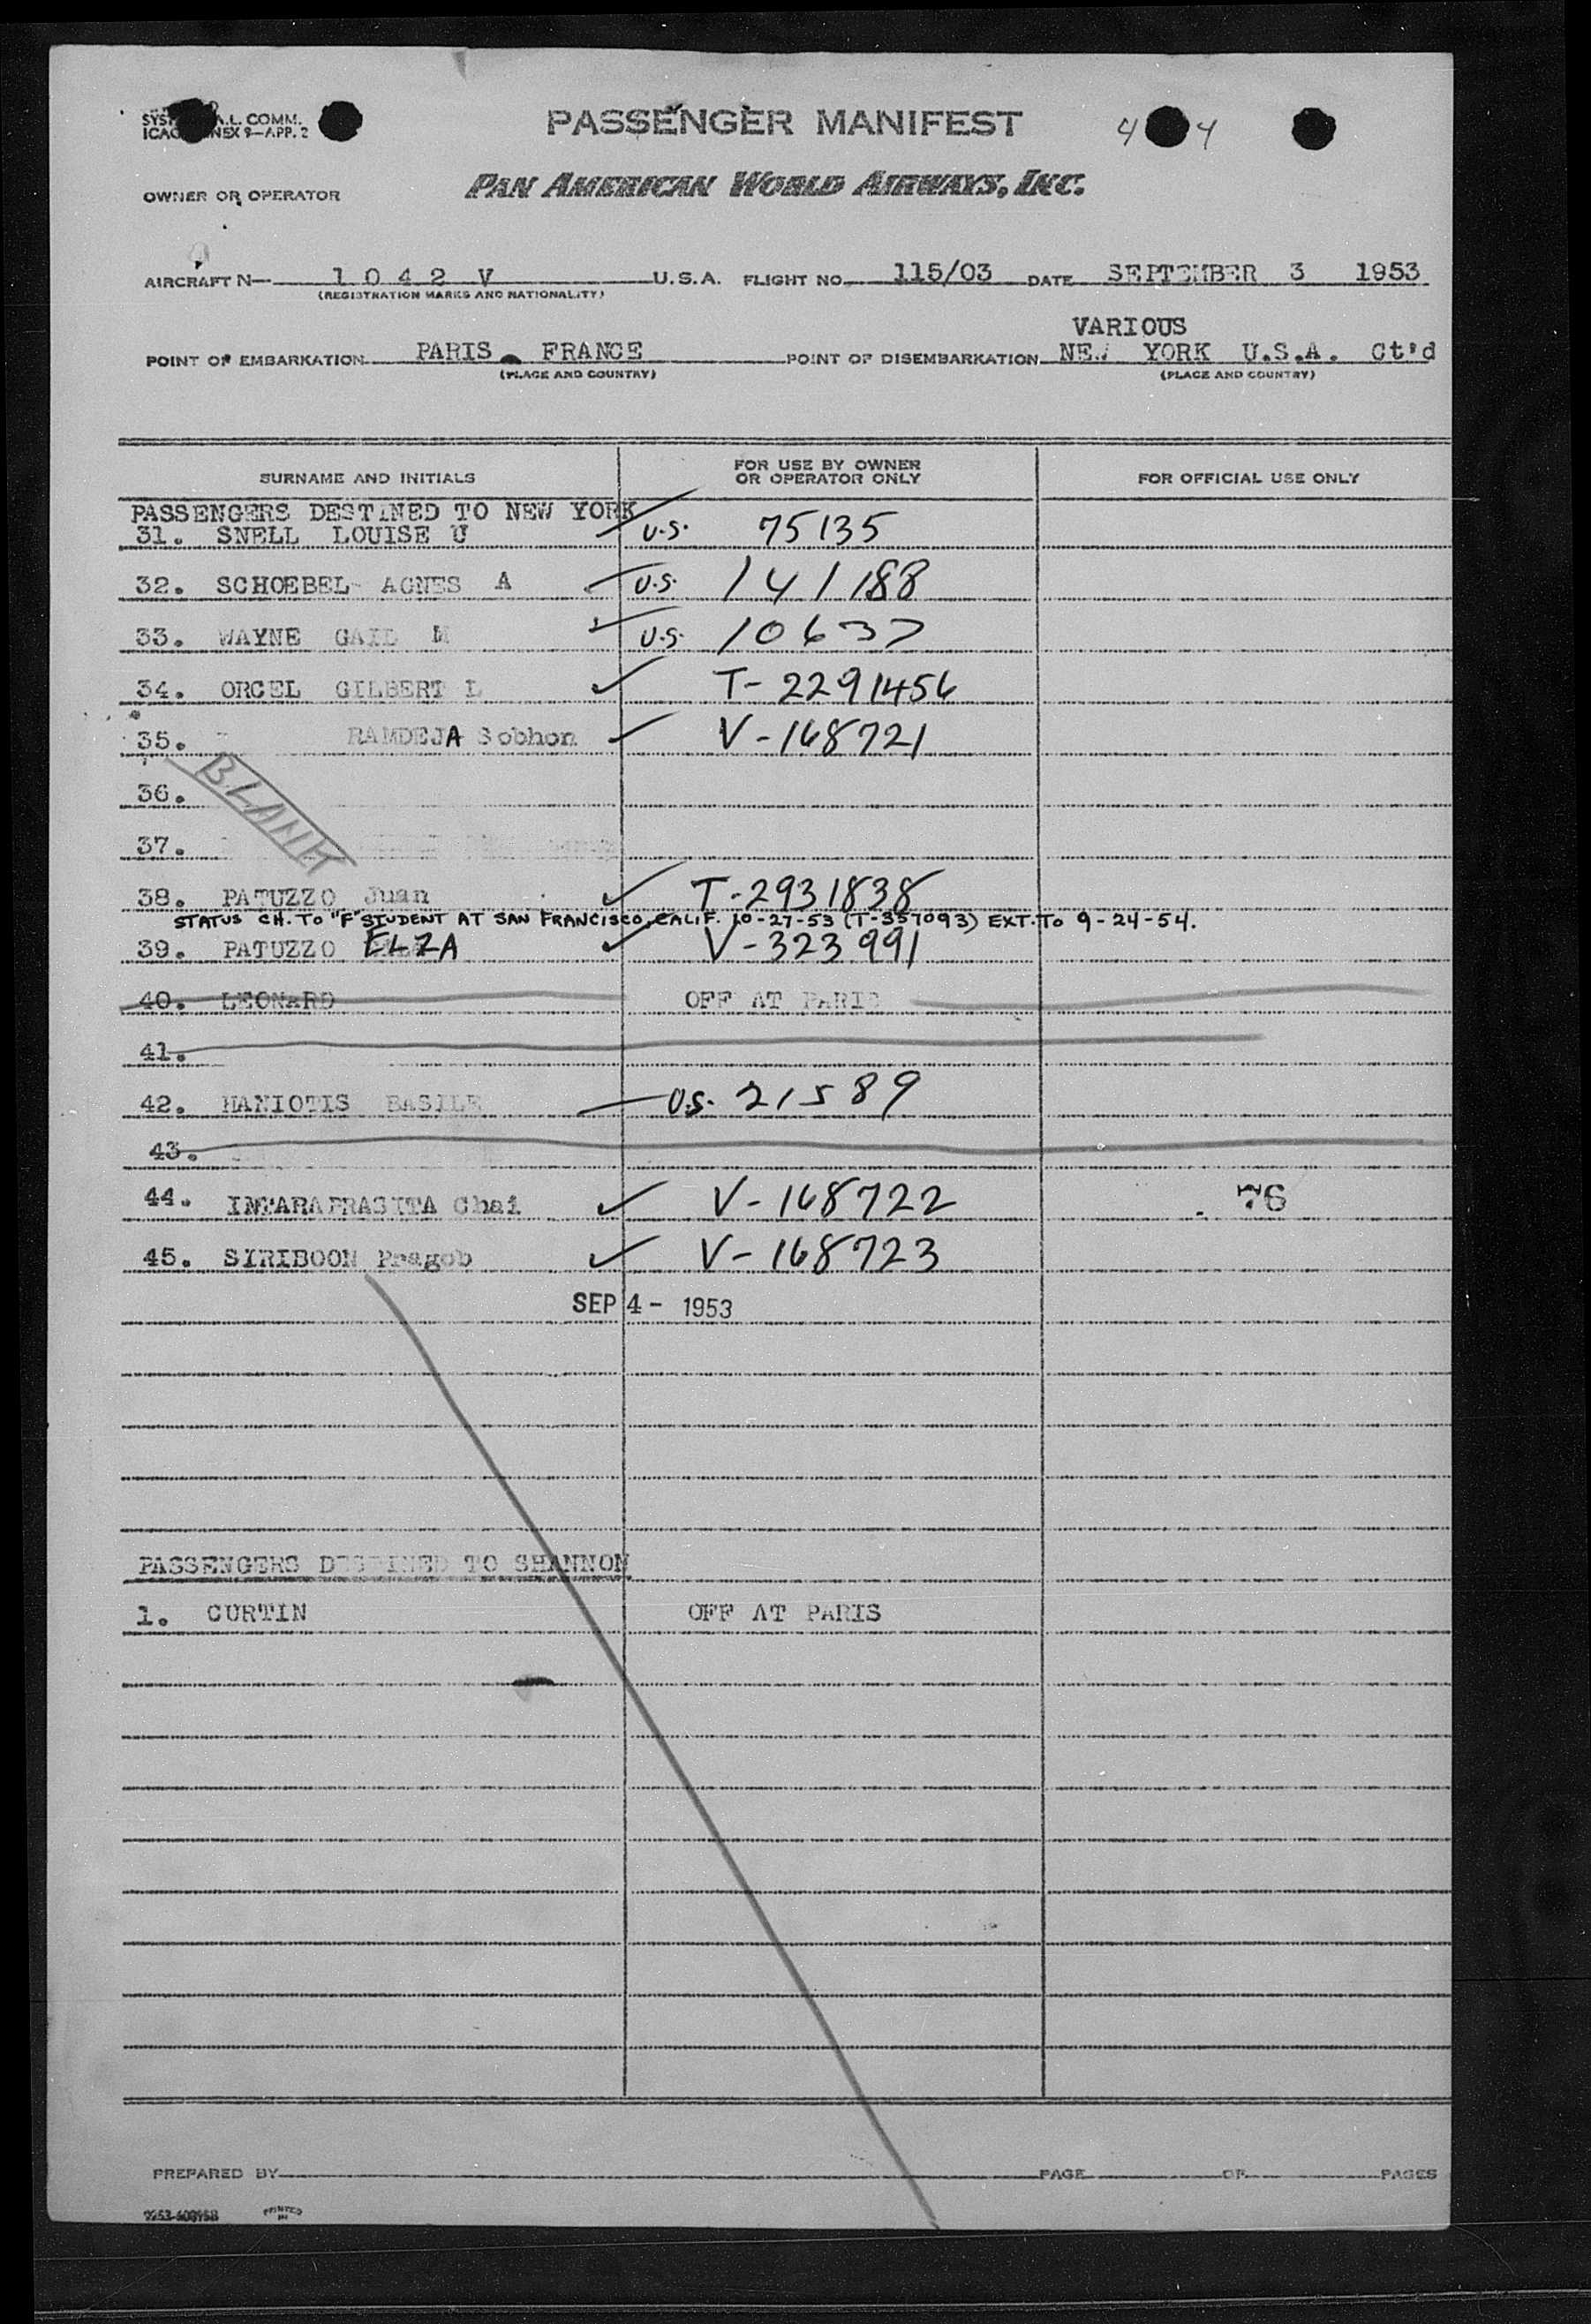 SYS A.L. COMM.
ICAO ANNEX 9—APP. 2
PASSENGER MANIFEST
4 4
OWNER OR OPERATOR
PAN AMERICAN WORLD AIRWAYS, INC.
AIRCRAFT N— 1 0 4 2 V U.S.A. FLIGHT NO. 115/03 DATE SEPTEMBER 3 1953
(REGISTRATION MARKS AND NATIONALITY)
VARIOUS
POINT OF EMBARKATION PARIS, FRANCE POINT OF DISEMBARKATION NEW YORK U.S.A. Ct'd
(PLACE AND COUNTRY) (PLACE AND COUNTRY)
SURNAME AND INITIALS FOR USE BY OWNER OR OPERATOR ONLY FOR OFFICIAL USE ONLY
PASSENGERS DESTINED TO NEW YORK
31. SNELL LOUISE U U.S. 75135
32. SCHOEBEL AGNES A U.S. 141188
33. WAYNE GAIL M U.S. 10637
34. ORCEL GILBERT L T-2291456
35. RAMDEJA Sobhon V-168721
BLANK
36.
37.
38. PATUZZO Juan T-2931838
STATUS CH. TO "F" STUDENT AT SAN FRANCISCO, CALIF. 10-27-53 (T-357093) EXT. TO 9-24-54.
39. PATUZZO ELZA V-323991
40. LEONARD OFF AT PARIS
41.
42. HANIOTIS BASILE U.S. 21589
43.
44. INTARAPRASITA Chai V-168722 76
45. SIRIBOON Pragob V-168723
SEP 4- 1953
PASSENGERS DESTINED TO SHANNON
1. CURTIN OFF AT PARIS
PREPARED BY PAGE OF PAGES
PRINTED